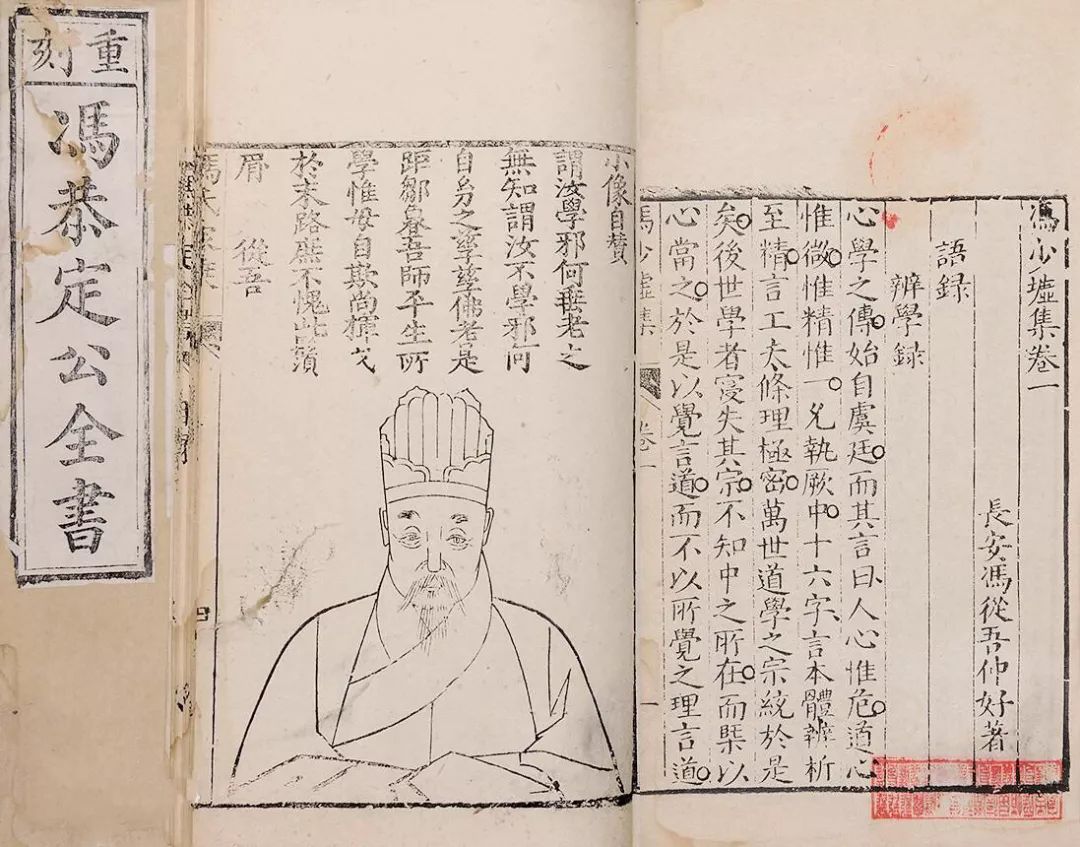 重刻
馮恭定公全書
小像自贊
謂汝學邪何垂老之
無知謂汝不學邪何
自㓜之孳孳佛老是
距鄒魯吾師平生所
學惟毋自欺尚揮戈
於末路庶不愧此鬚
眉 從吾
馮少墟集卷一
長安馮從吾仲好著
語録
辨學録
心學之傳始自虞廷而其言曰人心惟危道心
惟微惟精惟一允執厥中十六字言本體辨析
至精言工夫條理極密萬世道學之宗統於是
矣後世學者寖失其宗不知中之所在而槩以
心當之於是以覺言道而不以所覺之理言道
馮少墟集 卷一 一